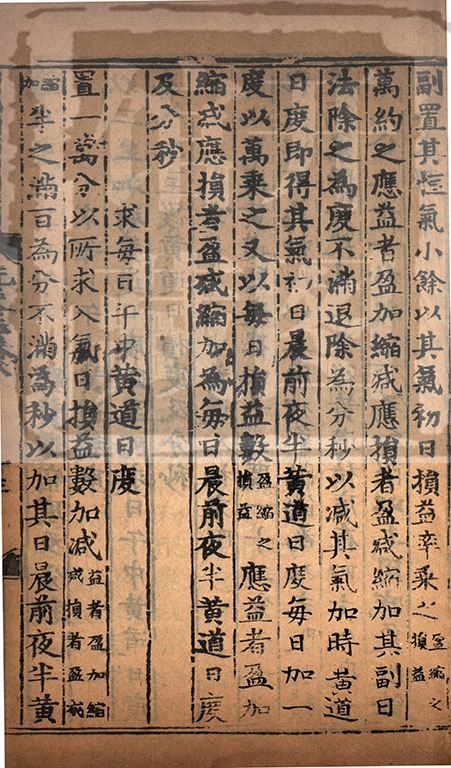 副置其恒氣小餘以其氣初日損益率乘之盈縮之損益
萬約之應益者盈加縮减應損者盈减縮加其副日
法除之為度不滿退除為分秒以減其氣加時黃道
日度即得其氣初日晨前夜半黃道日度每日加一
度以萬乘之又以每日損益數盈縮之損益應益者盈加
縮减應損者盈减縮加為每日晨前夜半黃道日度
及分秒
求每日午中黃道日度
置一萬分以所求入氣日損益數加減益者盈加縮减損者盈减
縮加半之滿百為分不滿為秒以加其日晨前夜半黃